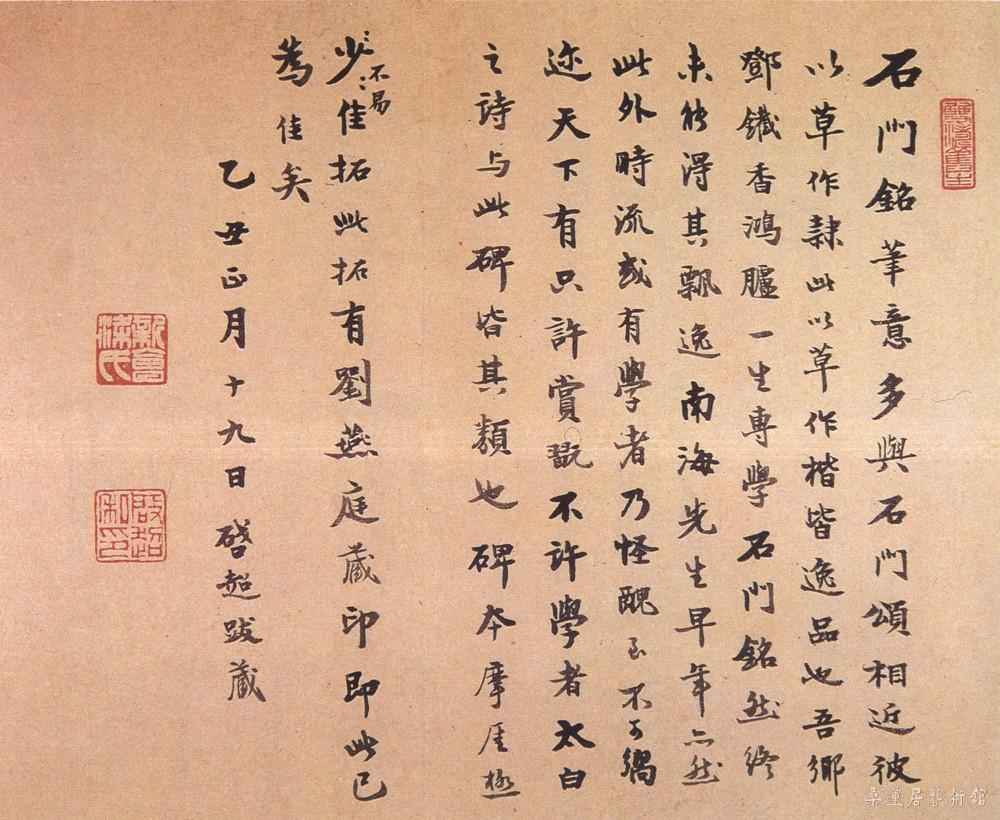 石門銘筆意多與石門頌相近彼
以草作隸此以草作楷皆逸品也吾鄉
鄧鐵香鴻臚一生專學石門銘然終
未能得其飄逸南海先生早年亦然
此外時流或有學者乃怪醜至不可嚮
迩天下有只許賞翫不許學者太白
之詩与此碑皆其類也碑本摩厓極
少佳拓此拓有劉燕庭藏印即此已
不易
為佳矣
乙丑正月十九日啓超跋藏
新會梁氏
啟超私印
桑蓮居藝術館